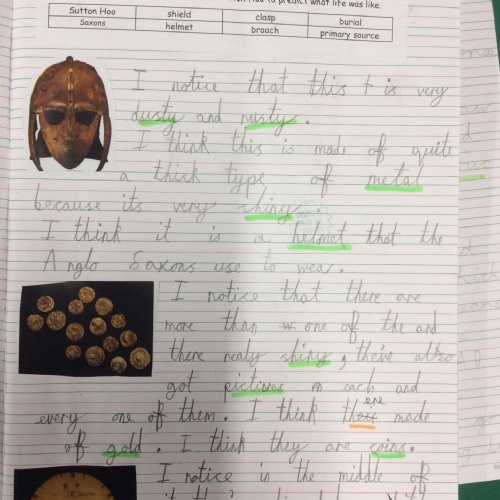 to predict what life was like.
Sutton Hoo shield clasp burial
Saxons helmet broach primary source
I notice that this is very
dusty and rusty.
I think this is made of quite
a thick type of metal
because its very shiny.
I think it is a helmet that the
Anglo Saxons use to wear.
I notice that there are
more than one of the and
there realy shiny, also
got pictures on each and
every one of them. I think they ere made
of gold. I think they are coins.
I notice in the middle of